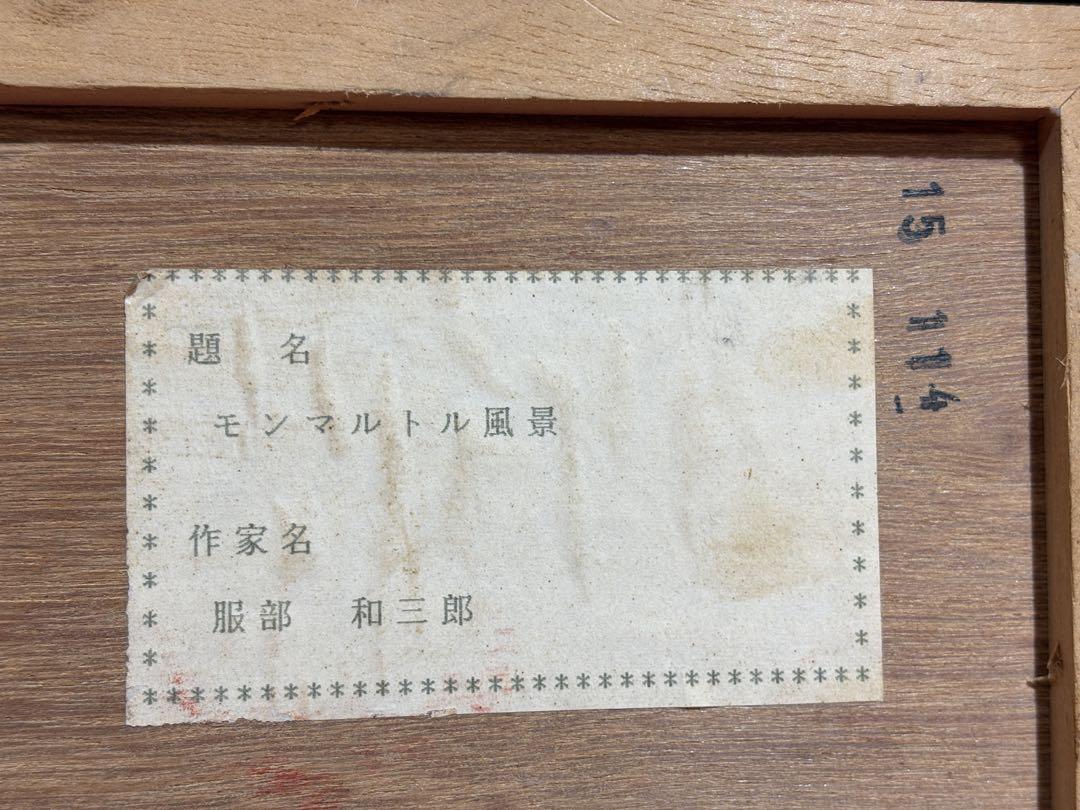 題　名
モンマルトル風景
作家名
服部　和三郎
15
114